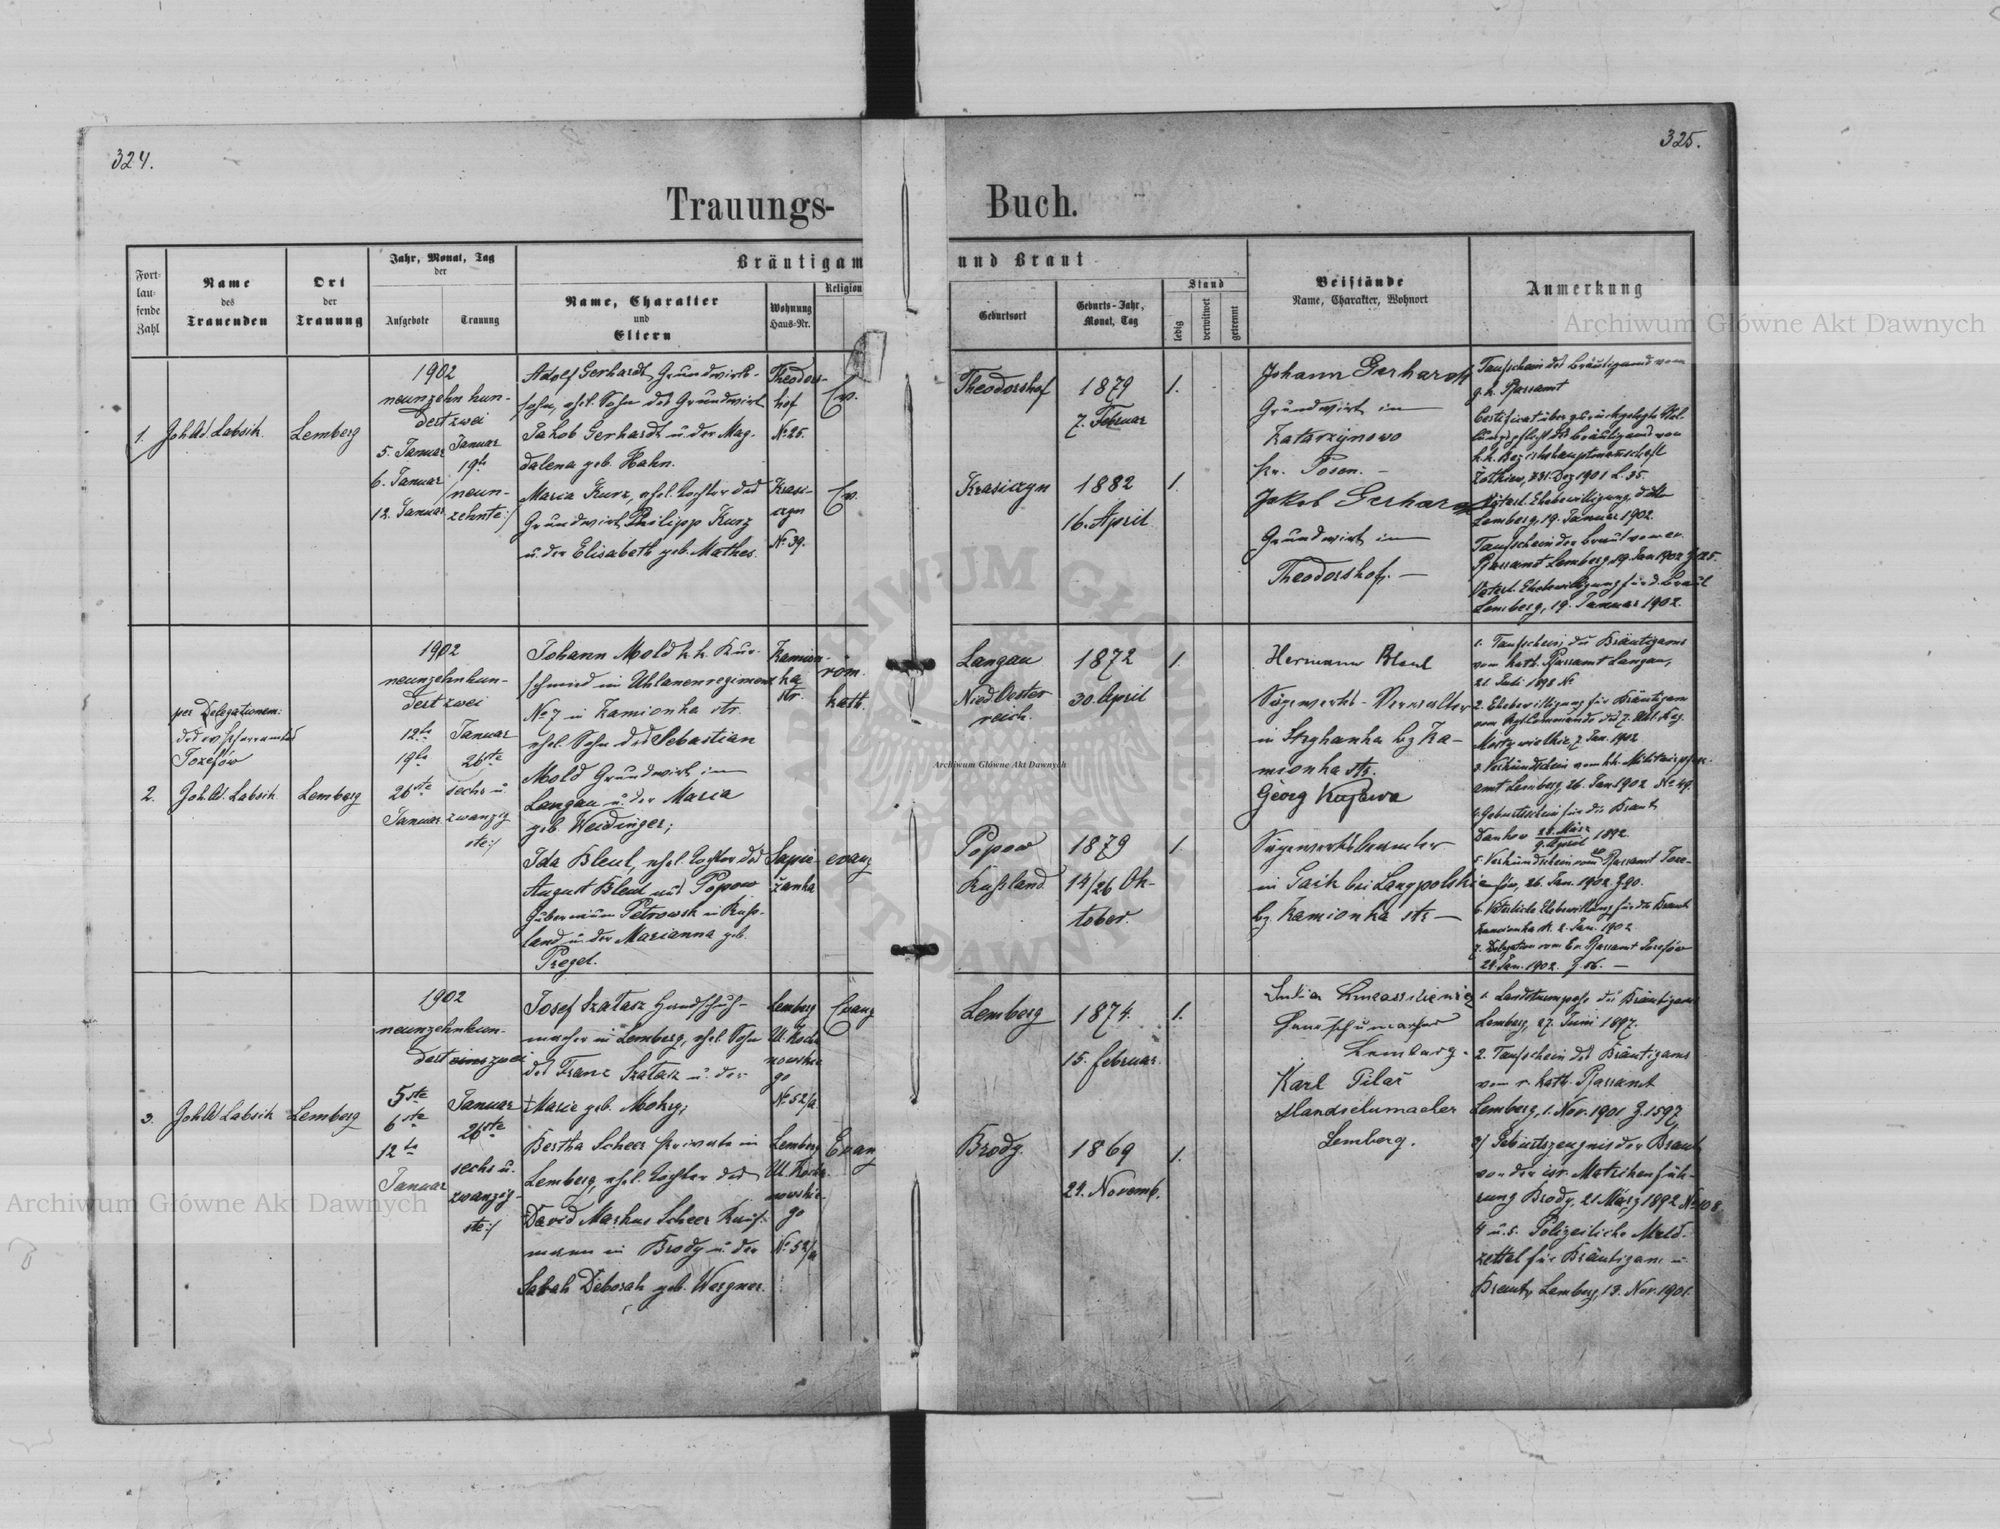 324.
325.
Trauungs-Buch.
Fortlaufende Zahl
Name des Trauenden
Ort der Trauung
Jahr, Monat, Tag der
Aufgebote
Trauung
Bräutigam und Braut
Name, Charakter und Eltern
Wohnung Haus-Nr.
Religion
Geburtsort
Geburts-Jahr, Monat, Tag
Stand
ledig
verwitwet
getrennt
Beistände
Name, Charakter, Wohnort
Anmerkung
1.
Joh. Ad. Labsik
Lemberg
1902
neunzehn hun-
dert zwei
5. Januar
6. Januar
12. Januar
Januar
19te
/neun-
zehnte/
Adolf Gerhardt, Grundwirts-
sohn, ehel. Sohn des Grundwirt
Jakob Gerhardt u. der Mag-
dalena geb. Hahn.
Theodors-
hof
No 25.
Ev.
Maria Kurz, ehel. Tochter des
Grundwirt Philipp Kurz
u. der Elisabeth geb. Mathes.
Krasi-
czyn
No 39.
Ev.
Theodorshof
1879
7. Februar
1.
Krasiczyn
1882
16. April
1.
Johann Gerhardt
Grundwirt in
Katarzynowo
pr. Posen. –
Jakob Gerhardt
Grundwirt in
Theodorshof. –
Taufschein des Bräutigams vom
g. k. Pfarramt
Certificat über zurückgelegte Stel-
lungspflicht des Bräutigams von
k. k. Bezirkshauptmannschaft
Żołkiew, 31. Dez 1901 L. 35.
Väterl. Ehebewilligung, dto
Lemberg, 19. Januar 1902.
Taufschein der Braut vom ev.
Pfarramt Lemberg, 19. Jan 1902 Z 125.
Väterl. Ehebewilligung für d. Braut
Lemberg, 19. Januar 1902.
2.
per Delegationem:
des ev. Pfarramtes
Josefów
Joh. Ad. Labsik
Lemberg
1902
neunzehnhun-
dert zwei
12te
19te
26ste
Januar
Januar
26ste
sechs u.
zwanzig
ste/
Johann Mold k. k. Kur-
schmied im Uhlanenregiment
No 7 in Kamionka str.
ehel. Sohn des Sebastian
Mold Grundwirt in
Langau u. der Maria
geb. Weidinger;
Kamion-
ka
str.
röm.
kath.
Ida Bleul, ehel. Tochter des
August Bleul aus Popow
Gubernium Petrowsk in Russ-
land u. der Marianna geb.
Pregel.
Sapie-
żanka
evang
Langau
Nied Oester
reich.
1872
30. April
1.
Popow
Rußland
1879
14/26 Ok-
tober.
1
Hermann Bleul
Sägewerks-Verwalter
in Stryhanka bg Ka-
mionka str.
Georg Kujawa
Sägewerksbeamter
in Gaik bei
bg. Kamionka str –
1. Taufschein des Bräutigams
vom kath. Pfarramt Langau,
21. Juli 1898 No
2. Ehebewilligung für Bräutigam
vom Rgt Commando des 7. Uhl. Reg.
Mosty wielkie, 7. Jan. 1902
3. Verkündschein vom kk. Militärpfarr-
amt Lemberg, 26. Jan 1902 No 49.
4. Geburtsschein für die Braut,
Dankow 28. März / 9. April 1892.
5. Verkündschein vom ev Pfarramt Jose-
fów, 26. Jan. 1902. Z 90.
6. Väterliche Ehebewilligung für die Braut
Kamionka st. 2. Jan. 1902.
7. Delegation vom Ev Pfarramt Josefów
24. Jan. 1902. Z. 86. –
3.
Joh Ad Labsik
Lemberg
1902
neunzehnhun-
dert zwei
5te
6te
12te
Januar
Januar
26ste
sechs u.
zwanzig-
ste/
Josef Szatasz Handschuh-
macher in Lemberg, ehel. Sohn
des Franz Szatasz u. der
† Marie geb. Mokry;
Lemberg
Ul. Kocha
nowskie
go
No 52/a
Evang
Bertha Scheer Private in
Lemberg, ehel. Tochter des
David Markus Scheer Kauf-
mann in Brody u. der
Sarah Deborah geb. Wergner.
Lemberg
Ul. Kocha-
nowskie-
go
No 52/a
Evang
Lemberg
1874.
15. februar.
1.
Brody.
1869
24. Novemb.
1.
Lemberg.
Karl Pilař
Handschumacher
Lemberg.
1. Landsturmpass des Bräutigams
Lemberg, 27. Juni 1897.
2. Taufschein des Bräutigams
vom r. kath. Pfarramt
Lemberg, 1. Nov. 1901 Z. 1597,
3/ Geburtszeugnis der Braut
von der isr. Matrikenfüh-
rung Brody, 21. März 1892 No 108.
4 u. 5. Polizeiliche Meld-
zettel für Bräutigam u.
Braut, Lemberg, 13. Nov. 1901.
Archiwum Główne Akt Dawnych
Archiwum Główne Akt Dawnych
Archiwum Główne Akt Dawnych
ARCHIWUM GŁÓWNE AKT DAWNYCH